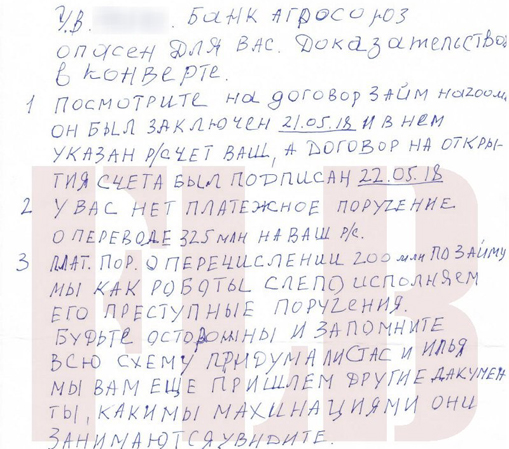 Ув. БАНК АГРОСОЮЗ
ОПАСЕН ДЛЯ ВАС. ДОКАЗАТЕЛЬСТВО
В КОНВЕРТЕ.
1 ПОСМОТРИТЕ НА ДОГОВОР ЗАЙМ НА 200 млн.
ОН БЫЛ ЗАКЛЮЧЕН 21.05.18 И В НЕМ
УКАЗАН Р/СЧЕТ ВАШ, А ДОГОВОР НА ОТКРЫ-
ТИЯ СЧЕТА БЫЛ ПОДПИСАН 22.05.18
2 У ВАС НЕТ ПЛАТЕЖНОЕ ПОРУЧЕНИЕ
О ПЕРЕВОДЕ 325 МЛН НА ВАШ Р/С.
3 ПЛАТ. ПОР. О ПЕРЕЧИСЛЕНИИ 200 млн ПО ЗАЙМУ
МЫ КАК РОБОТЫ СЛЕПО ИСПОЛНЯЕМ
ЕГО ПРЕСТУПНЫЕ ПОРУЧЕНИЯ
БУДЬТЕ ОСТОРОЖНЫ И ЗАПОМНИТЕ
ВСЮ СХЕМУ ПРИДУМАЛИ СТАС И ИЛЬЯ
МЫ ВАМ ЕЩЕ ПРИШЛЕМ ДРУГИЕ ДАКУМЕН
ТЫ, КАКИМЫ МАХИНАЦИЯМИ ОНИ
ЗАНИМАЮТСЯ УВИДИТЕ.
FLB